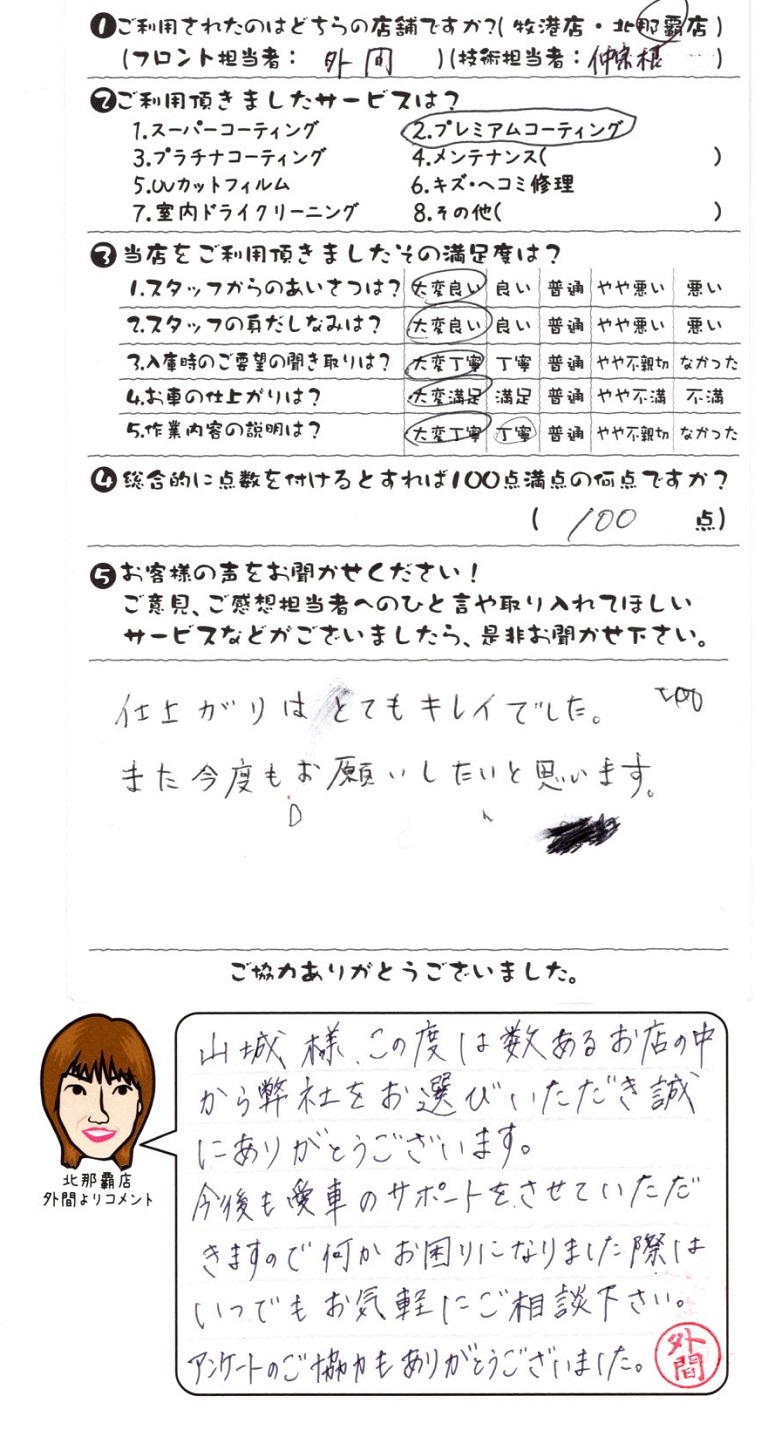 ❶ご利用されたのはどちらの店舗ですか?(牧港店・北那覇店)
(フロント担当者: 外間 )(技術担当者:仲宗根 )
❷ご利用頂きましたサービスは?
1.スーパーコーティング 2.プレミアムコーティング
3.プラチナコーティング 4.メンテナンス( )
5.UVカットフィルム 6.キズ・ヘコミ修理
7.室内ドライクリーニング 8.その他( )
❸当店をご利用頂きましたその満足度は?
1.スタッフからのあいさつは? 大変良い 良い 普通 やや悪い 悪い
2.スタッフの身だしなみは? 大変良い 良い 普通 やや悪い 悪い
3.入庫時のご要望の聞き取りは? 大変丁寧 丁寧 普通 やや不親切 なかった
4.お車の仕上がりは? 大変満足 満足 普通 やや不満 不満
5.作業内容の説明は? 大変丁寧 丁寧 普通 やや不親切 なかった
❹総合的に点数を付けるとすれば100点満点の何点ですか?
( 100 点)
❺お客様の声をお聞かせください!
ご意見、ご感想担当者へのひと言や取り入れてほしい
サービスなどがございましたら、是非お聞かせ下さい。
仕上がりはとてもキレイでした。
また今度もお願いしたいと思います。
ご協力ありがとうございました。
山城様、この度は数あるお店の中
から弊社をお選びいただき誠
にありがとうございます。
今後も愛車のサポートをさせていただ
きますので何かお困りになりました際は
いつでもお気軽にご相談下さい。
アンケートのご協力もありがとうございました。
外間
北那覇店
外間よりコメント